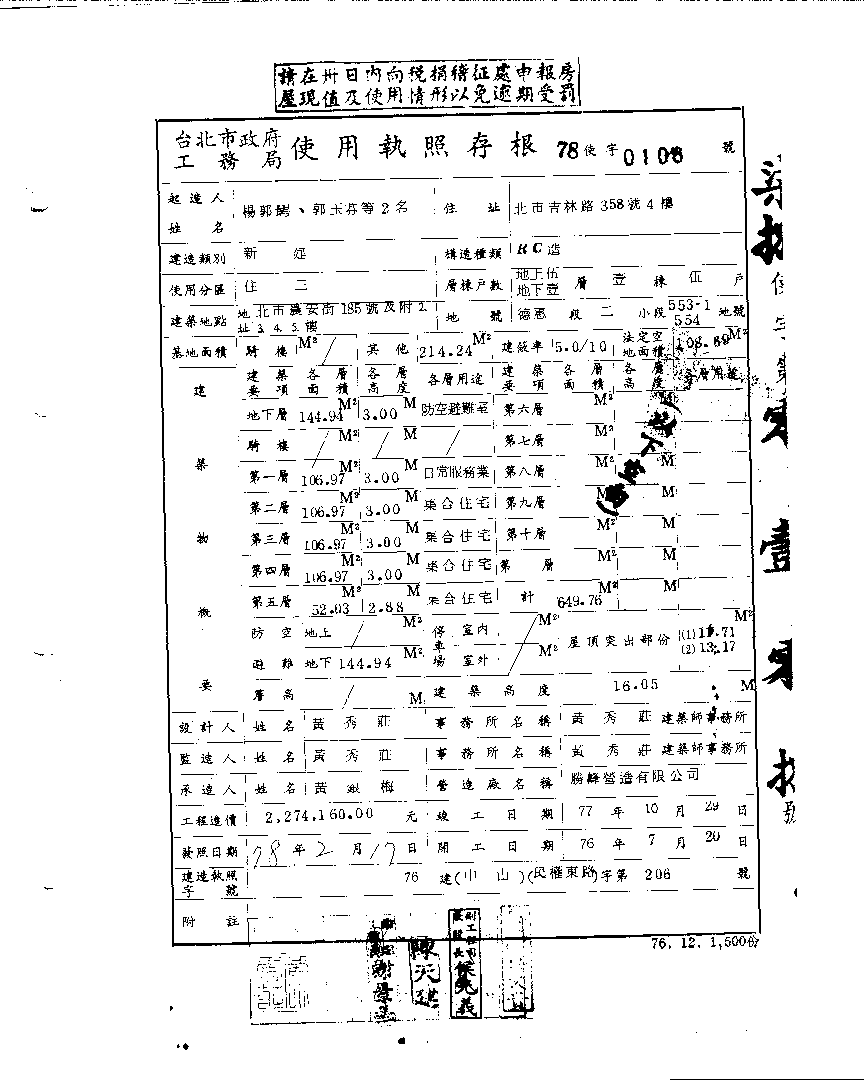 請在卅日內向稅捐稽征處申報房
屋現值及使用情形以免逾期受罰
台北市政府
工務局 使用執照存根 78使字0106號
起造人姓名 楊郭 、郭玉 等2名 住址 北市吉林路358號4樓
建造類別 新 構造種類 RC造
使用分區 住三 層棟戶數 地上伍地下壹層壹棟伍戶
建築地點 地址 北市農安街185號及附2.3.4.5.樓 地號 德惠段二小段553-1 554地號
基地面積 騎樓 M² / 其他 214.24M² 建蔽率 5.0/10 法定空地面積 108.89M²
建築物概要 建築要項 各層面積 各層高度 各層用途 建築要項 各層面積 各層高度 各層用途
地下層 144.94M² 3.00M 防空避難室 第六層 M² M
騎樓 / M² / M / 第七層 M² M
第一層 106.97M² 3.00M 日常服務業 第八層 M² M
第二層 106.97M² 3.00M 集合住宅 第九層 M² M
第三層 106.97M² 3.00M 集合住宅 第十層 M² M
第四層 106.97M² 3.00M 集合住宅 第 層 M² M
第五層 52.03M² 2.88M 集合住宅 計 649.76M² M
防空避難 地上 / M² 停車場 室內 M² 屋頂突出部份 (1)11.71 M²
地下 144.94M² 室外 M² (2)13.17
簷高 / M 建築高度 16.05 M
設計人 姓名 黃秀莊 事務所名稱 黃秀莊建築師事務所
監造人 姓名 黃秀莊 事務所名稱 黃秀莊建築師事務所
承造人 姓名 黃 梅 營造廠名稱 勝峰營造有限公司
工程造價 2,274.160.00元 竣工日期 77年10月29日
發照日期 78年2月17日 開工日期 76年7月20日
建造執照字號 76建(中山)(民權東路)字第206號
附註
76.12.1,500份
陳天